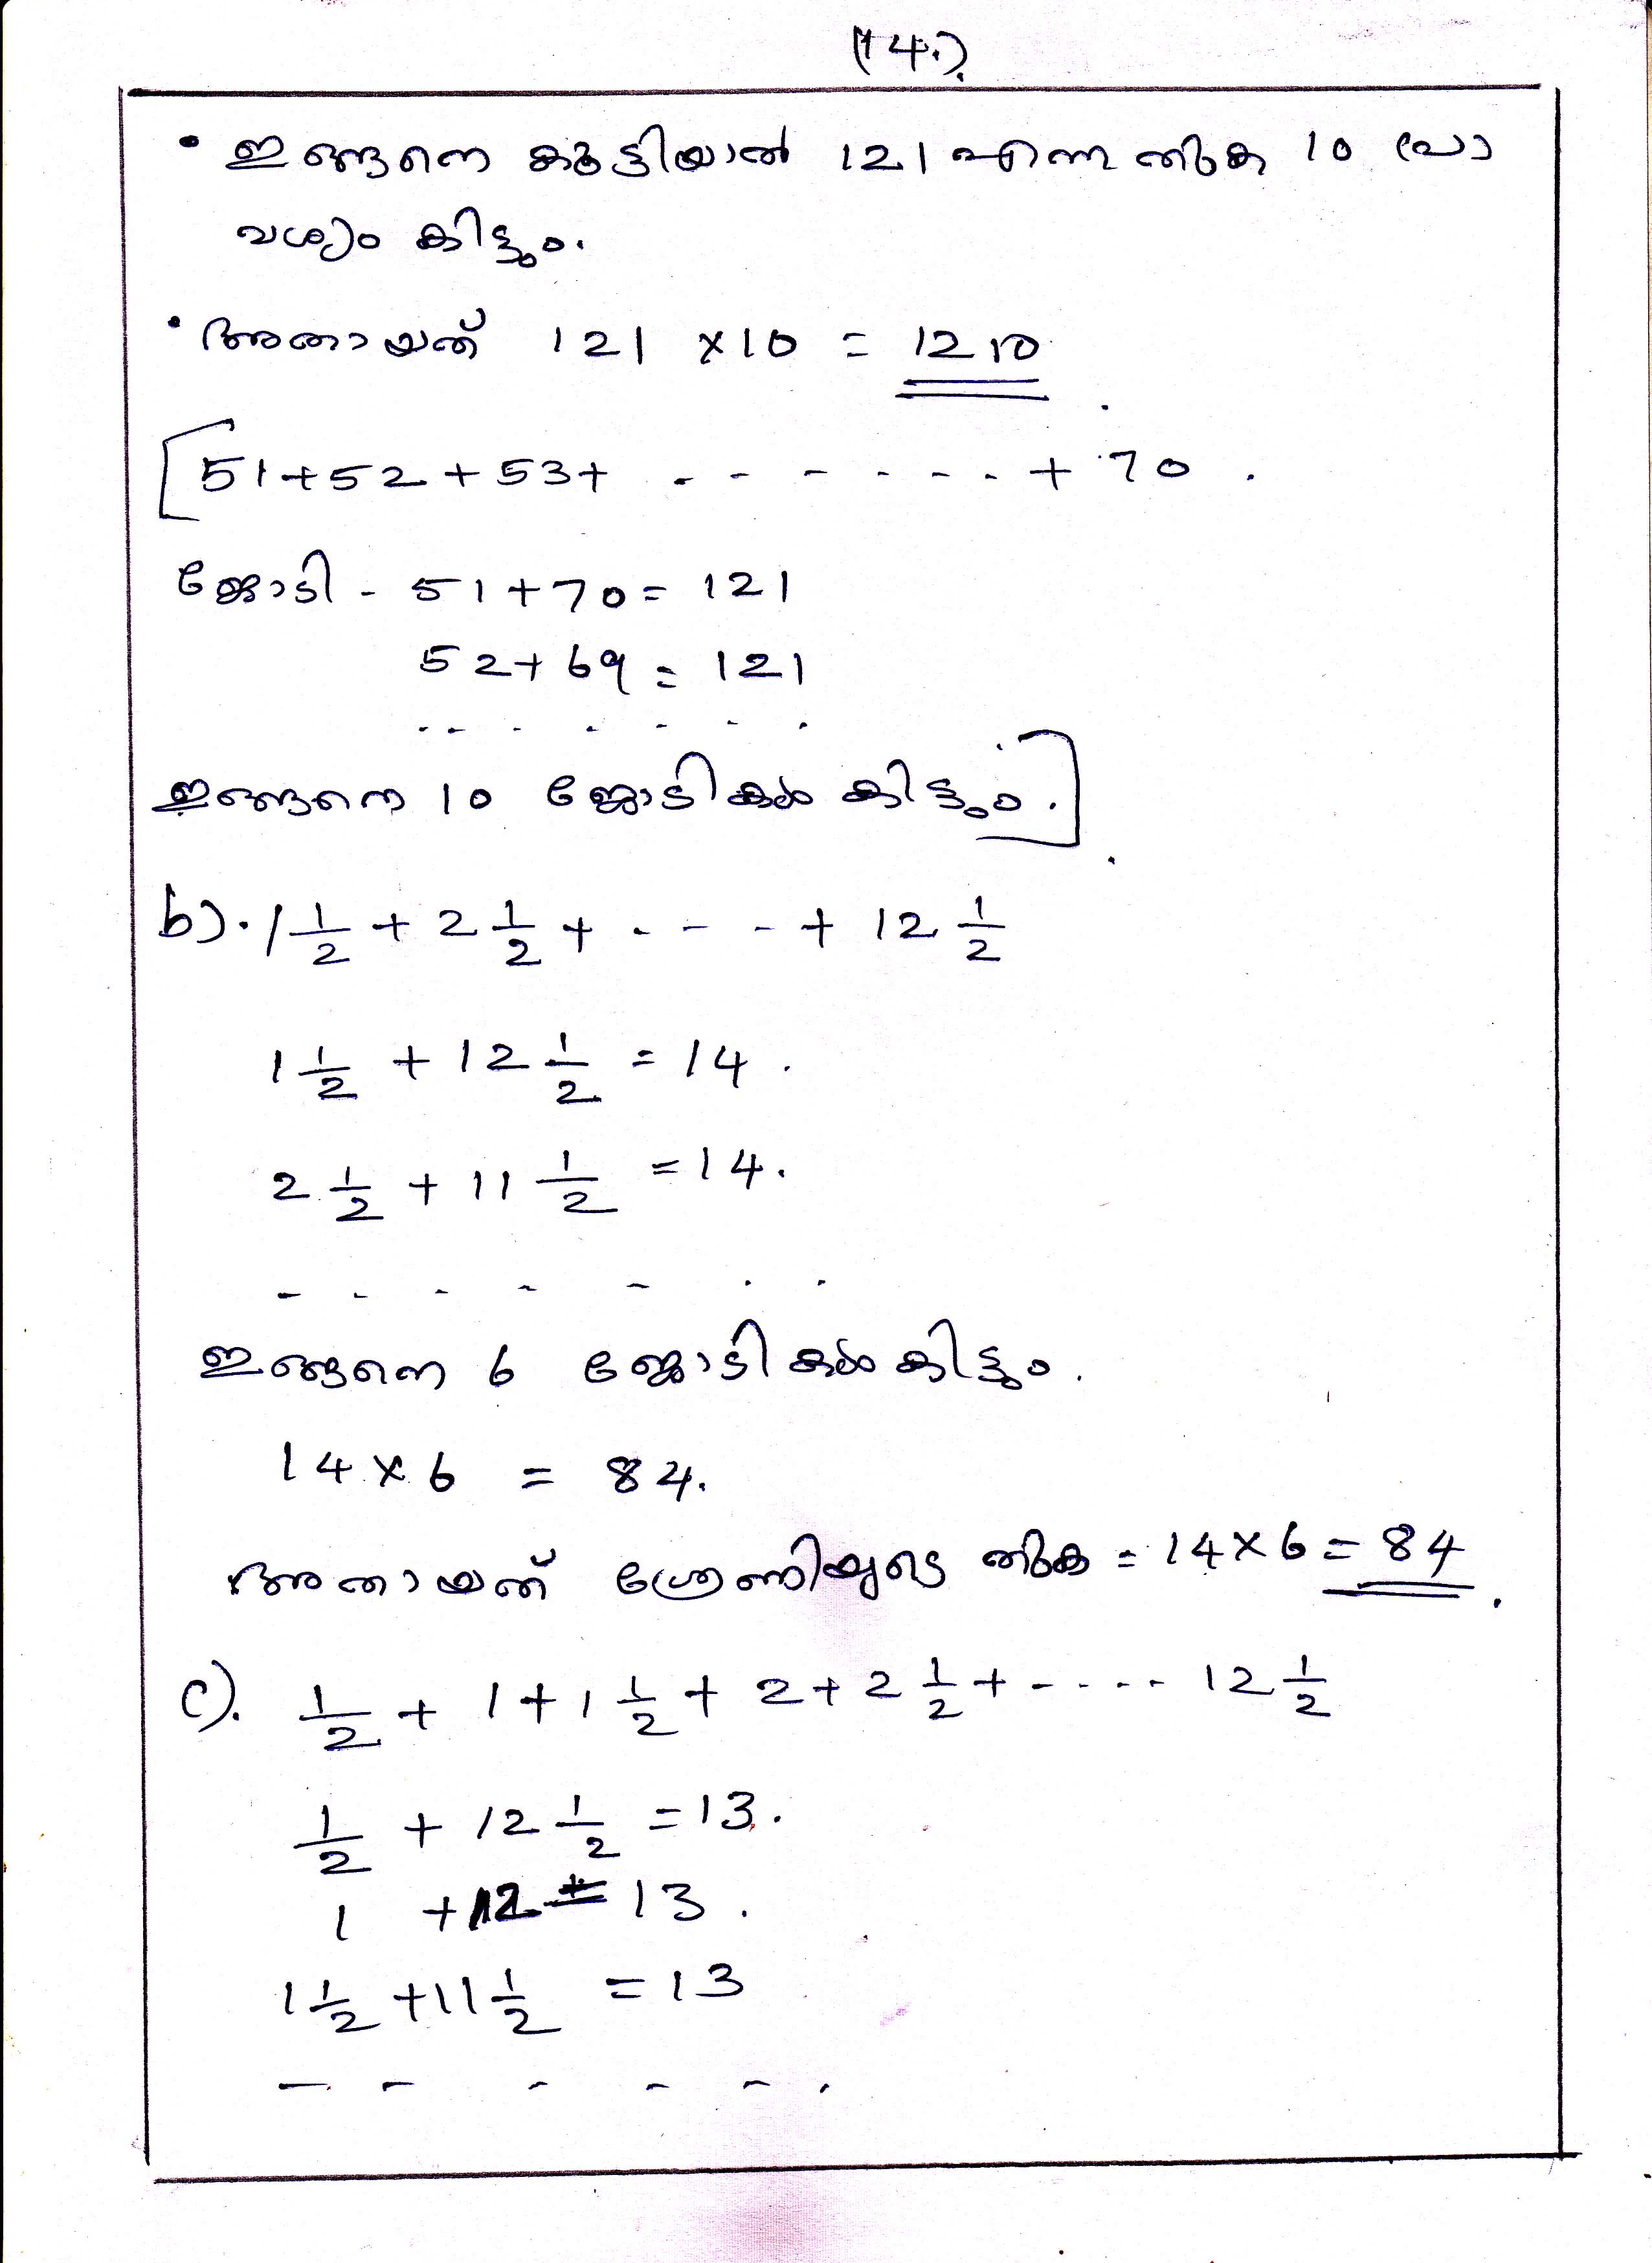 (14.)
• ഇങ്ങനെ കൂട്ടിയാൽ 121 എന്ന തുക 10 പ്രാ
വശ്യം കിട്ടും.
• അതായത് 121 × 10 = 1210
[51+52+53+ - - - - - - - + 70 .
ജോടി - 51+70 = 121
52+69 = 121
- - - - - - -
ഇങ്ങനെ 10 ജോടികൾ കിട്ടും.]
b). 1 1/2 + 2 1/2 + - - - - + 12 1/2
1 1/2 + 12 1/2 = 14 .
2 1/2 + 11 1/2 = 14.
- - - - - - -
ഇങ്ങനെ 6 ജോടികൾ കിട്ടും.
14 × 6 = 84.
അതായത് ശ്രേണിയുടെ തുക = 14×6 = 84 .
c). 1/2 + 1 + 1 1/2 + 2 + 2 1/2 + - - - - 12 1/2
1/2 + 12 1/2 = 13.
1 + 12 = 13 .
1 1/2 + 11 1/2 = 13
- - - - - -